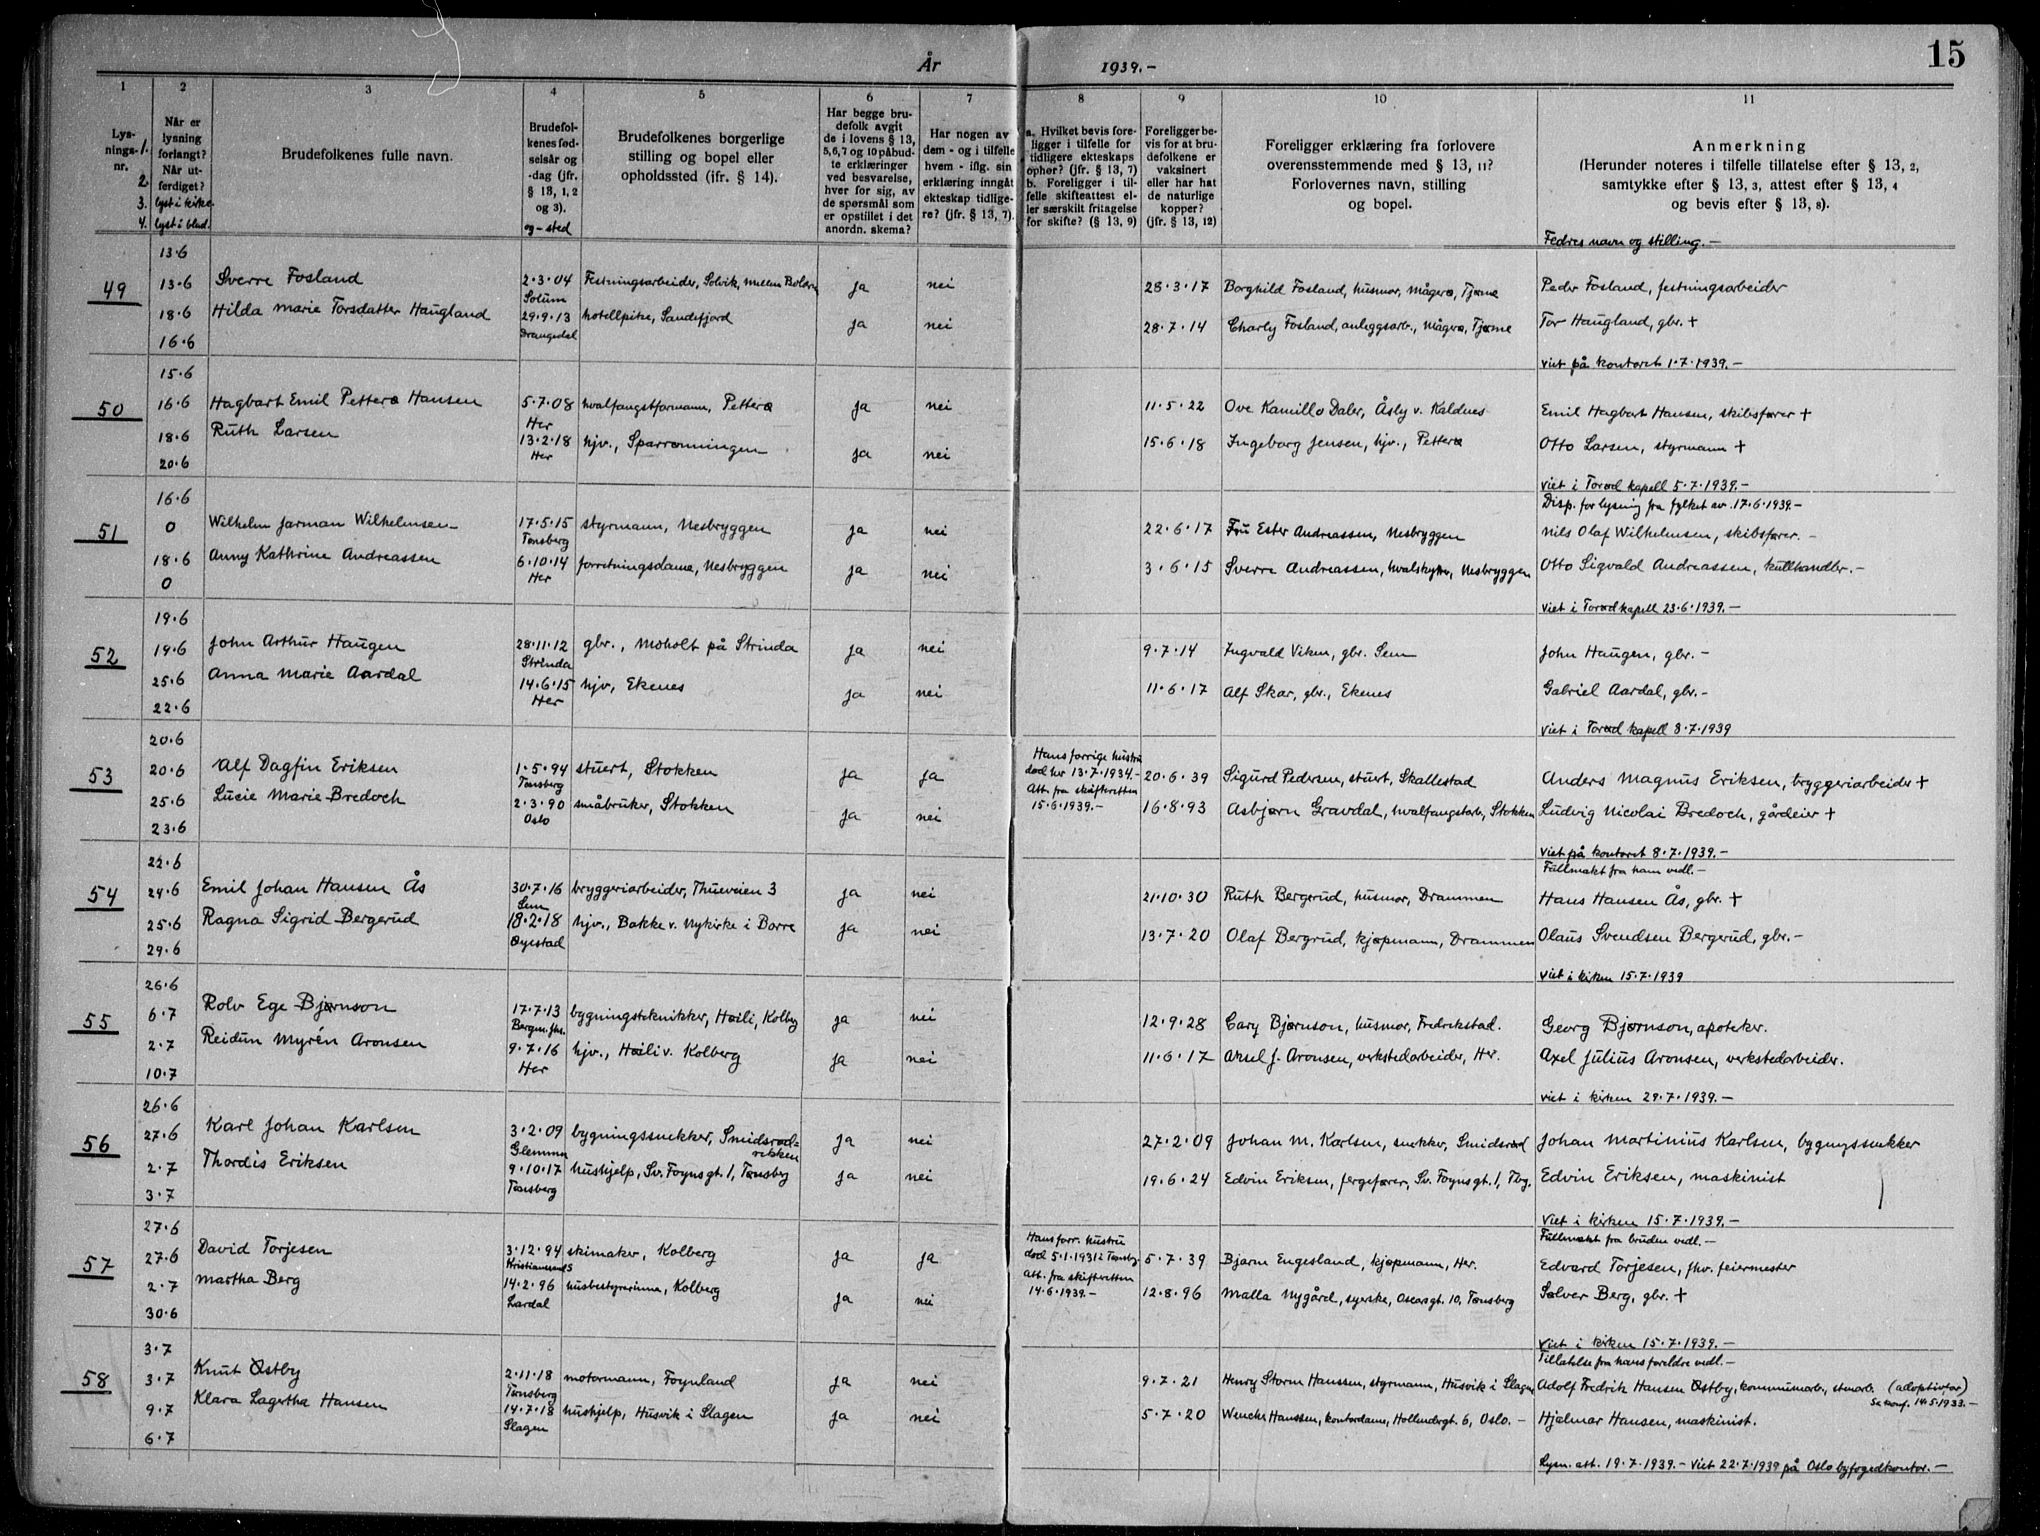 15
År 1939.-
1
Lys-
nings-
nr.
1.
2.
3.
4.
2
Når er
lysning
forlangt?
Når ut-
ferdiget?
lyst i kirke.
lyst i blad.
3
Brudefolkenes fulle navn.
4
Brudefol-
kenes fød-
selsår og
-dag (jfr.
§ 13, 1, 2
og 3).
og - sted
5
Brudefolkenes borgerlige
stilling og bopel eller
opholdssted (ifr. § 14).
6
Har begge bru-
defolk avgit
de i lovens § 13,
5, 6, 7 og 10 påbud-
te erklæringer
ved besvarelse,
hver for sig, av
de spørsmål som
er opstillet i det
anordn. skema?
7
Har nogen av
dem - og i tilfelle
hvem - iflg. sin
erklæring inngått
ekteskap tidlige-
re? (jfr. § 13, 7).
8
a. Hvilket bevis fore-
ligger i tilfelle for
tidligere ekteskaps
ophør? (jfr. § 13, 7)
b. Foreligger i til-
felle skifteattest el-
ler særskilt fritagelse
for skifte? (§ 13, 9)
9
Foreligger be-
vis for at bru-
defolkene er
vaksinert
eller har hat
de naturlige
kopper?
(jfr. § 13, 12)
10
Foreligger erklæring fra forlovere
overensstemmende med § 13, 11?
Forlovernes navn, stilling
og bopel.
11
Anmerkning
(Herunder noteres i tilfelle tillatelse efter § 13, 2,
samtykke efter § 13, 3, attest efter § 13, 4
og bevis efter § 13, 8).
Fedres navn og stilling.-
13.6
49 13.6 Sverre Fosland 2.3.04 Festningsarbeider, Solvik, mellem Bolærn ja nei 28.3.17 Borghild Fosland, husmor, Mågerø, Tjøme Peder Fosland, festningsarbeider
Solum
18.6 Hilda Marie Torsdatter Haugland 29.9.13 hotellpike, Sandefjord ja nei 28.7.14 Charly Fosland, anleggsarb., Mågerø, Tjøme Tor Haugland, gbr. +
16.6 Drangedal
viet på kontoret 1.7.1939.-
15.6
50 16.6 Hagbart Emil Petterø Hansen 5.7.08 hvalfangstformann, Petterø ja nei 11.5.22 Ove Kamillo Daler, Åsly v. Kaldnes Emil Hagbart Hansen, skibsfører +
Her
18.6 Ruth Larsen 13.2.18 hjv., Sparrenningen ja nei 15.6.18 Ingeborg Jensen, hjv., Petterø Otto Larsen, styrmann +
20.6 Her
viet i Torød kapell 5.7.1939.-
16.6 Disp. for lysing fra fylket av 17.6.1939.-
51 0 Wilhelm Jarman Wilhelmsen 17.5.15 styrmann, Nesbryggen ja nei 22.6.17 Fru Ester Andreassen, Nesbryggen Nils Olaf Wilhelmsen, skibsfører.-
Tønsberg
18.6 Anny Kathrine Andreassen 6.10.14 forretningsdame, Nesbryggen ja nei 3.6.15 Sverre Andreassen, hvalskytter, Nesbryggen Otto Sigvald Andreassen, kullhandler.-
0 Her
viet i Torød kapell 23.6.1939.-
19.6
52 19.6 John Arthur Haugen 28.11.12 gbr., Moholt på Strinda ja nei 9.7.14 Ingvald Viken, gbr. Sem John Haugen, gbr.-
Strinda
25.6 Anna Marie Aardal 14.6.15 hjv, Ekenes ja nei 11.6.17 Alf Skar, gbr., Ekenes Gabriel Aardal, gbr.-
22.6 Her
viet i Torød kapell 8.7.1939
20.6 Hans forrige hustru
53 20.6 Alf Dagfin Eriksen 1.5.94 stuert, Stokken ja ja død her 13.7.1934.- 20.6.39 Sigurd Pedersen, stuert, Skallestad Anders Magnus Eriksen, bryggeriarbeider +
Tønsberg Att. fra skifteretten
25.6 Lucie Marie Bredoch 2.3.90 småbruker, Stokken ja nei 15.6.1939.- 16.8.93 Asbjørn Gravdal, hvalfangstarb., Stokken Ludvig Nicolai Bredoch, gårdeier +
23.6 Oslo
viet på kontoret 8.7.1939.-
22.6 Fullmakt fra ham vedl.-
54 24.6 Emil Johan Hansen Ås 30.7.16 bryggeriarbeider, Thueveien 3 ja nei 21.10.30 Ruth Bergerud, husmor, Drammen Hans Hansen Ås, gbr. +
Sem
25.6 Ragna Sigrid Bergerud 18.2.18 hjv., Bakke v. Nykirke i Borre ja nei 13.7.20 Olaf Bergrud, kjøpmann, Drammen Olaus Svendsen Bergerud, gbr.-
29.6 Øyestad
viet i kirken 15.7.1939
26.6
55 6.7 Rolv Ege Bjørnson 17.7.13 bygningstekniker, Høili, Kolberg ja nei 12.9.28 Cary Bjørnson, husmor, Fredrikstad. Georg Bjørnson, apoteker.
2.7 Reidun Myrén Aronsen 9.7.16 hjv., Høili v. Kolberg ja nei 11.6.17 Aksel J. Aronsen, verkstedarbeider, Her. Axel Julius Aronsen, verkstedarbeider.
10.7 Her
viet i kirken 29.7.1939.-
26.6
56 27.6 Karl Johan Karlsen 3.2.09 bygningssnekker, Smidsrød= ja nei 27.2.09 Johan M. Karlsen, snekker, Smidsrød Johan Martinius Karlsen, bygningssnekker
Glemmen
2.7 Thordis Eriksen 9.10.17 hushjelp, Sv. Foynsgt. 1, Tønsberg ja nei 19.6.24 Edvin Eriksen, fergefører, Sv. Foynsgt. 1, Tbg. Edvin Eriksen, maskinist
3.7 Tønsberg
viet i kirken 15.7.1939.-
27.6 Hans forr. hustru Fullmakt fra bruden vedl.-
57 27.6 David Torjesen 3.12.94 skimaker, Kolberg ja ja død 5.1.1931 i Tønsbg. 5.7.39 Bjarne Engesland, kjøpmann, Her. Edvard Torjesen, fhv. feiermester
Kristiansand S att. fra skifteretten
2.7 Martha Berg 14.2.96 husbestyrerinne, Kolberg ja nei 14.6.1939.- 12.8.96 Malla Nygård, syerske, Oscarsgt. 10, Tønsberg Sølver Berg, gbr. +
30.6 Lardal
viet i kirken 15.7.1939.-
3.7 Tillatelse fra hans foreldre vedl.-
58 3.7 Knut Østby 2.11.18 motormann, Føynland ja nei 9.7.21 Henry Storm Hanssen, styrmann, Husvik i Slagen Adolf Fredrik Hansen Østby, kommunearb., (adoptivfar)
Tønsberg Se konf. 14.5.1933.-
9.7 Klara Lagertha Hansen 14.7.18 hushjelp, Husvik i Slagen ja nei 5.7.20 Wencke Hanssen, kontordame, Hollendergt. 6, Oslo.- Hjalmar Hansen, maskinist.
6.7 Slagen
Lysn. att. 19.7.1939.- Viet 22.7.1939 på Oslo byfogedkontor.-